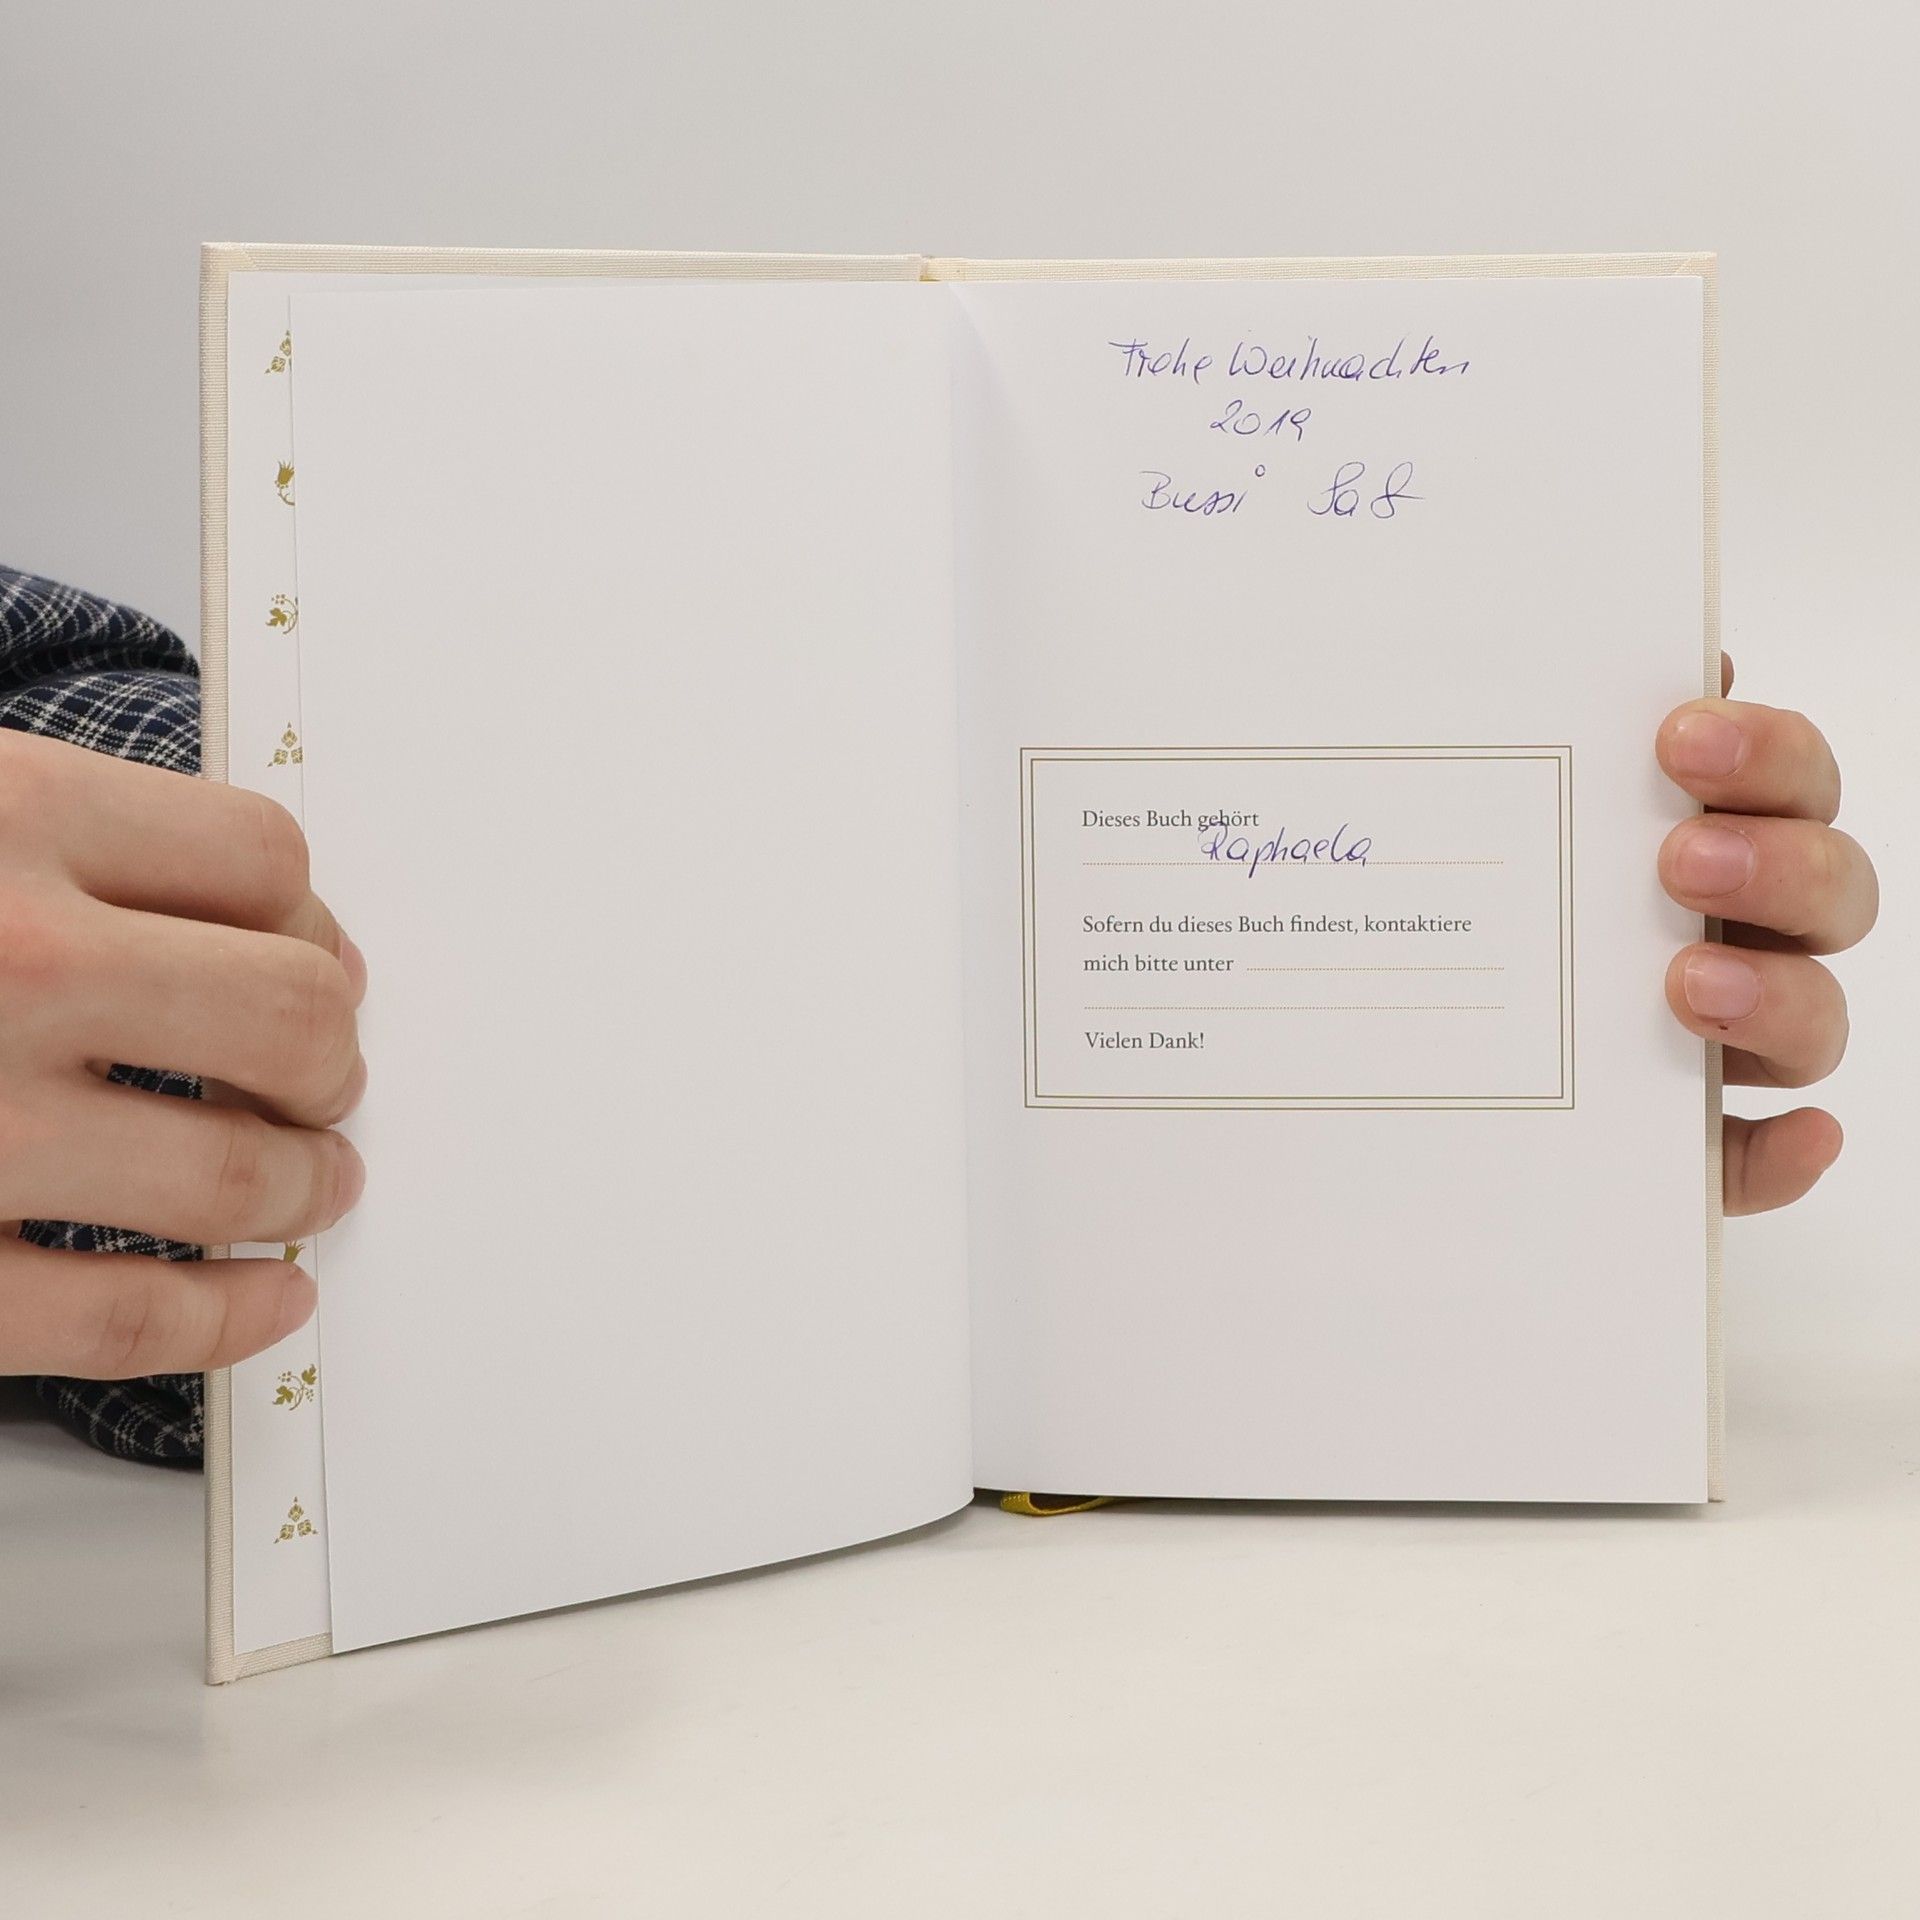 Frohe Weihnachten
2019
Bussi
Dieses Buch gehört
Raphaela
Sofern du dieses Buch findest, kontaktiere
mich bitte unter
Vielen Dank!